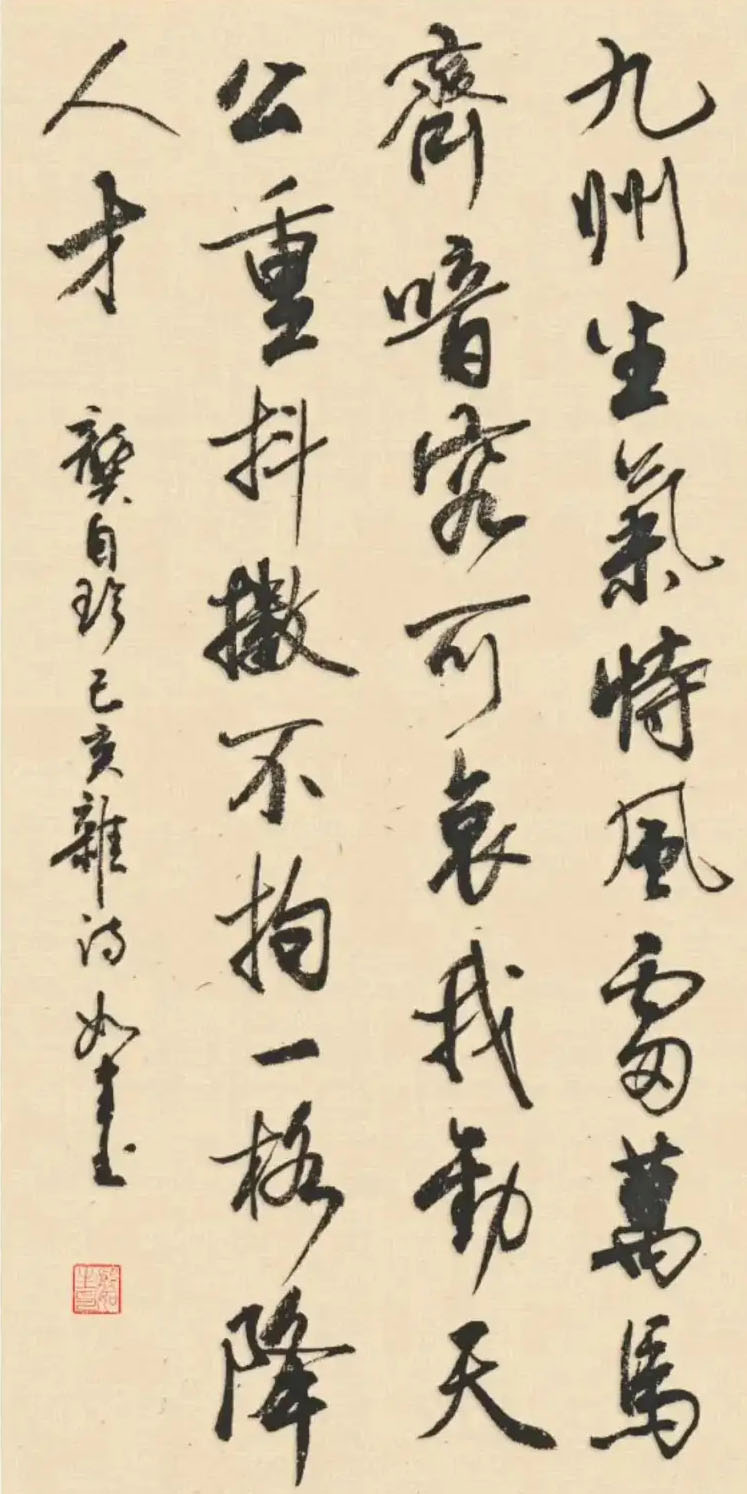 九州生氣恃風雷萬馬
齊喑究可哀我勸天
公重抖擻不拘一格降
人才 龔自珍己亥雜詩 如